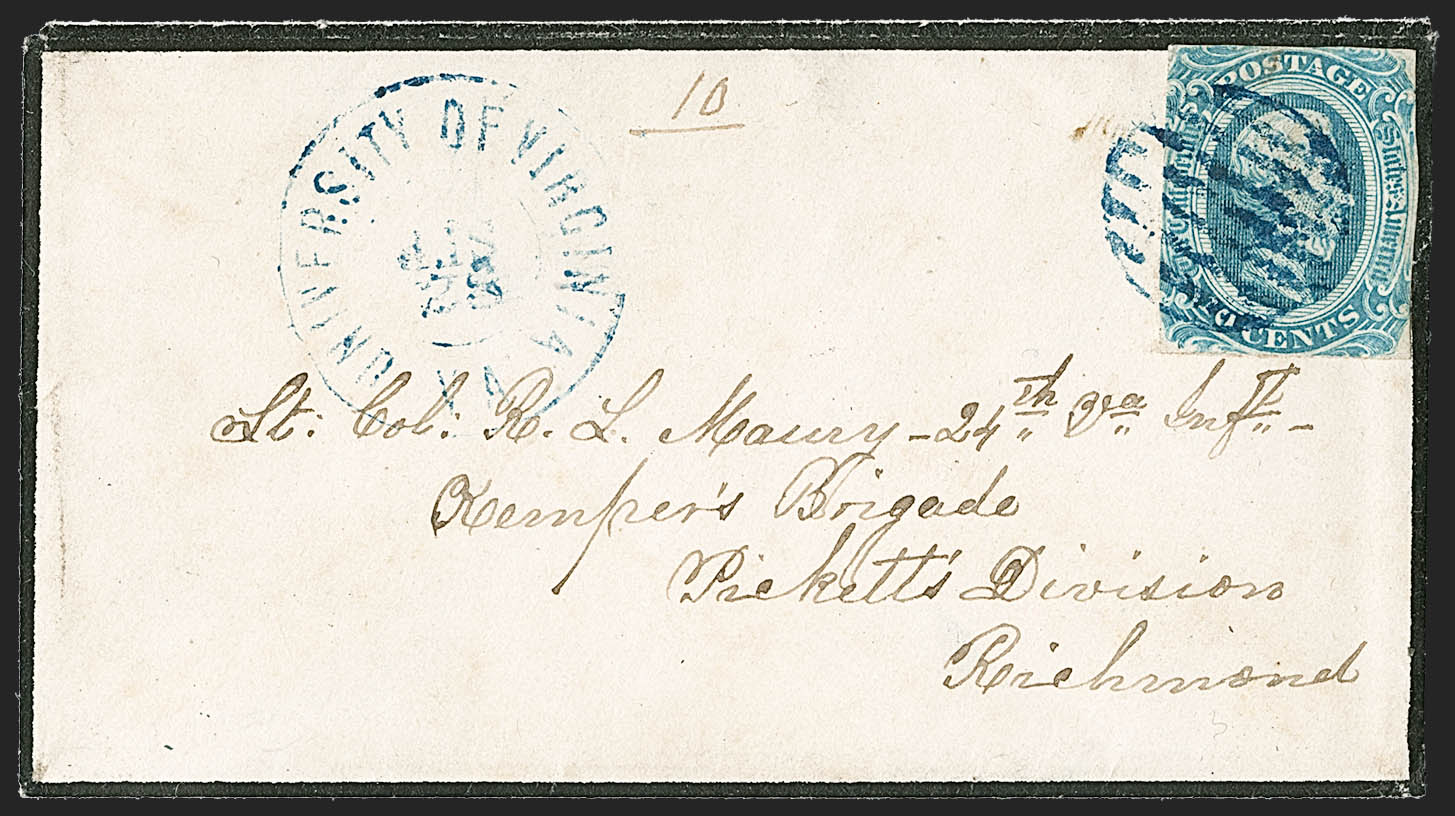 UNIVERSITY OF VIRGINIA
10
POSTAGE
The Confederate States of America
CENTS
Lt: Col: R. L. Maury - 24th Va Inft -
Kemper's Brigade
Pickett's Division
Richmond